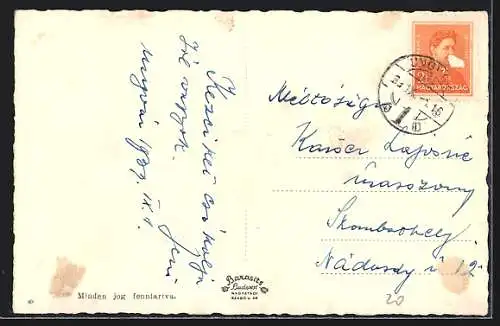 Kezeiket csókolja
Jól vagyok.
Ungvár 1939. IX. 1.
Jenő
UNGVÁR
MAGYARORSZÁG
Méltóságos
Kaiser Lajosné
úrasszony
Szombathely.
Nádasdy u 12
20
Minden jog fenntartva.
Barasits
Budapest